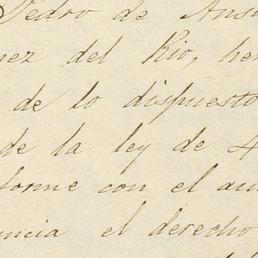 Pedro de Ans
nez del Rio, he
de lo dispuesto
de la ley de 4
forme con el au
ncia el derecho